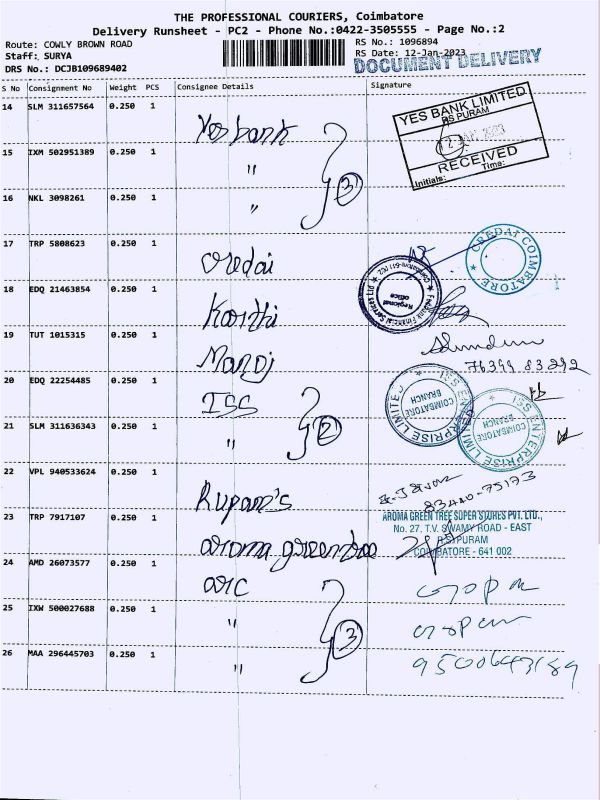 THE PROFESSIONAL COURIERS, Coimbatore
Delivery Runsheet - PC2 - Phone No.:0422-3505555 - Page No.:2
Route: COWLY BROWN ROAD
RS No.: 1096894
Staff: SURYA
RS Date: 12-Jan-2023
DRS No.: DCJB109689402
DOCUMENT DELIVERY
S No Consignment No Weight PCS Consignee Details Signature
14 SLM 311657564 0.250 1 Yes bank
YES BANK LIMITED
RS PURAM
12 JAN 2023
RECEIVED
Initials: Time:
15 IXM 502951389 0.250 1 "
16 NKL 3098261 0.250 1 " 3
17 TRP 5808623 0.250 1 Credai
CREDAI COIMBATORE
18 EDQ 21463854 0.250 1 Karthi
Fedbank Financial Services Ltd
Regional office
19 TUT 1015315 0.250 1 Manoj
76399 83292
20 EDQ 22254485 0.250 1 ISS
ISS ENTERPRISE LIMITED
COIMBATORE BRANCH
ISS ENTERPRISE LIMITED
COIMBATORE BRANCH
21 SLM 311636343 0.250 1 " 2
22 VPL 940533624 0.250 1 Rupam's
83440-75173
23 TRP 7917107 0.250 1 aroma greentree
AROMA GREEN TREE SUPER STORES PVT. LTD.,
No. 27, T.V. SWAMY ROAD - EAST
R.S. PURAM
COIMBATORE - 641 002
24 AMD 26073577 0.250 1 arc
25 IXW 500027688 0.250 1 " 3
26 MAA 296445703 0.250 1 "
9500643189